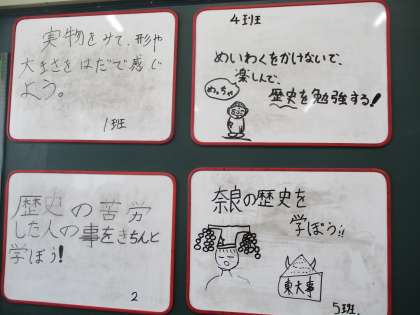 実物をみて、形や
大きさをはだで感じ
よう。
1班
4班
めいわくをかけないで、
楽しんで、
めっちゃ
歴史を勉強する!
歴史の苦労
した人の事をきちんと
学ぼう!
2
奈良の歴史を
学ぼう!!
東大事
5班.